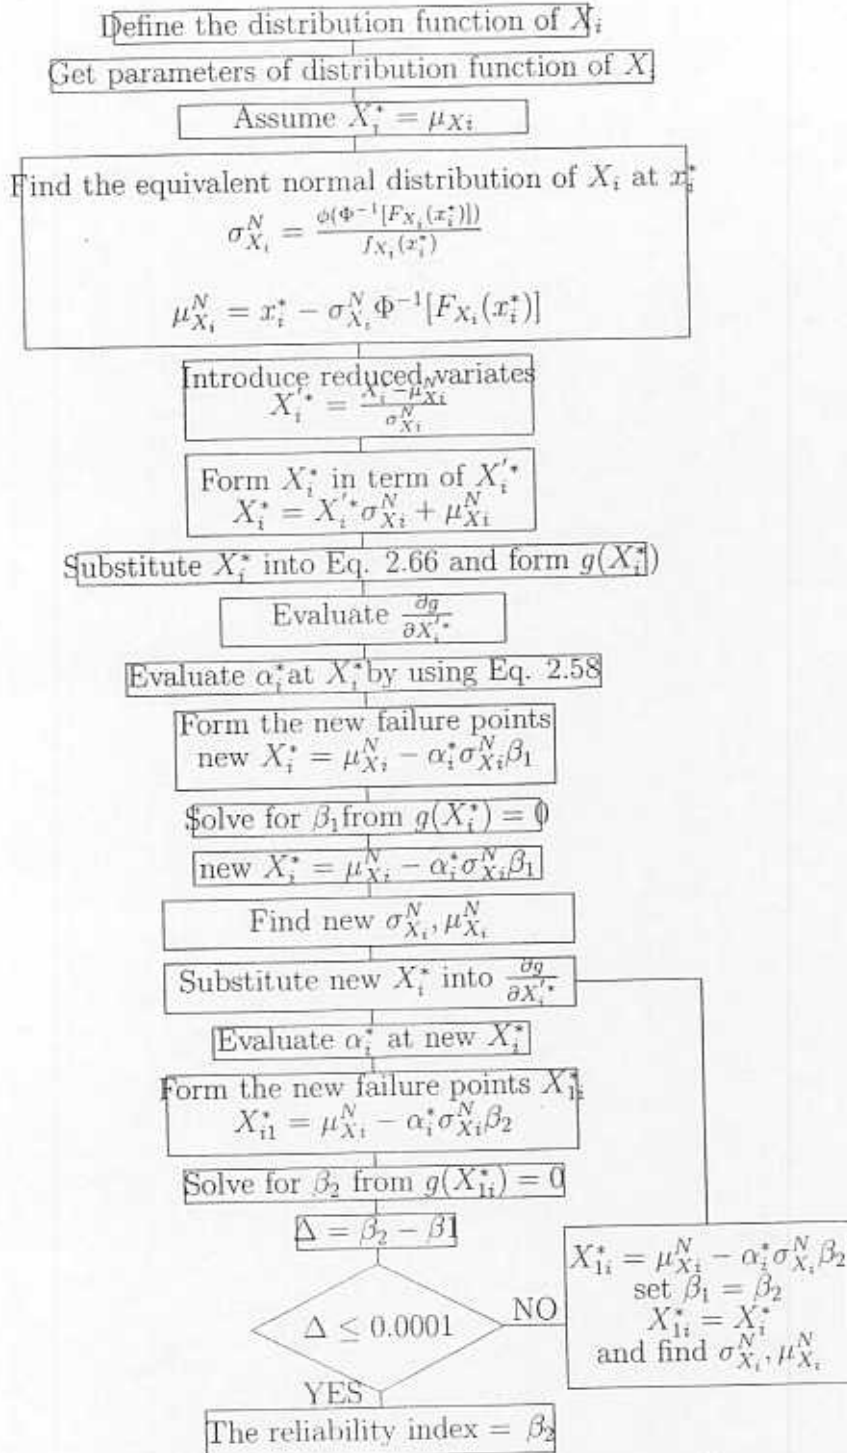 Define the distribution function of X_i
Get parameters of distribution function of X_i
Assume X_i^* = μ_{Xi}
Find the equivalent normal distribution of X_i at x_i^*
σ_{X_i}^N = φ(Φ^{-1}[F_{X_i}(x_i^*)]) / f_{X_i}(x_i^*)
μ_{X_i}^N = x_i^* − σ_{X_i}^N Φ^{-1}[F_{X_i}(x_i^*)]
Introduce reduced variates
X_i^{'*} = (X_i − μ_{Xi}^N) / σ_{Xi}^N
Form X_i^* in term of X_i^{'*}
X_i^* = X_i^{'*} σ_{Xi}^N + μ_{Xi}^N
Substitute X_i^* into Eq. 2.66 and form g(X_i^*)
Evaluate ∂g/∂X_i^{'*}
Evaluate α_i^* at X_i^* by using Eq. 2.58
Form the new failure points
new X_i^* = μ_{Xi}^N − α_i^* σ_{Xi}^N β_1
Solve for β_1 from g(X_i^*) = 0
new X_i^* = μ_{Xi}^N − α_i^* σ_{Xi}^N β_1
Find new σ_{X_i}^N, μ_{X_i}^N
Substitute new X_i^* into ∂g/∂X_i^{'*}
Evaluate α_i^* at new X_i^*
Form the new failure points X_{1i}^*
X_{i1}^* = μ_{Xi}^N − α_i^* σ_{Xi}^N β_2
Solve for β_2 from g(X_{1i}^*) = 0
Δ = β_2 − β1
Δ ≤ 0.0001
NO
X_{1i}^* = μ_{X_i}^N − α_i^* σ_{X_i}^N β_2
set β_1 = β_2
X_{1i}^* = X_i^*
and find σ_{X_i}^N, μ_{X_i}^N
YES
The reliability index = β_2